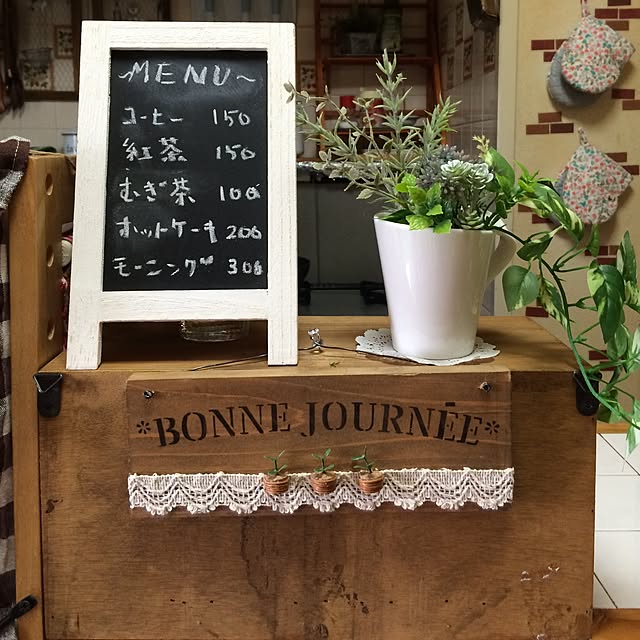 ~MENU~
コーヒー 150
紅茶 150
むぎ茶 100
ホットケーキ 200
モーニング 300
*BONNE JOURNÉE*